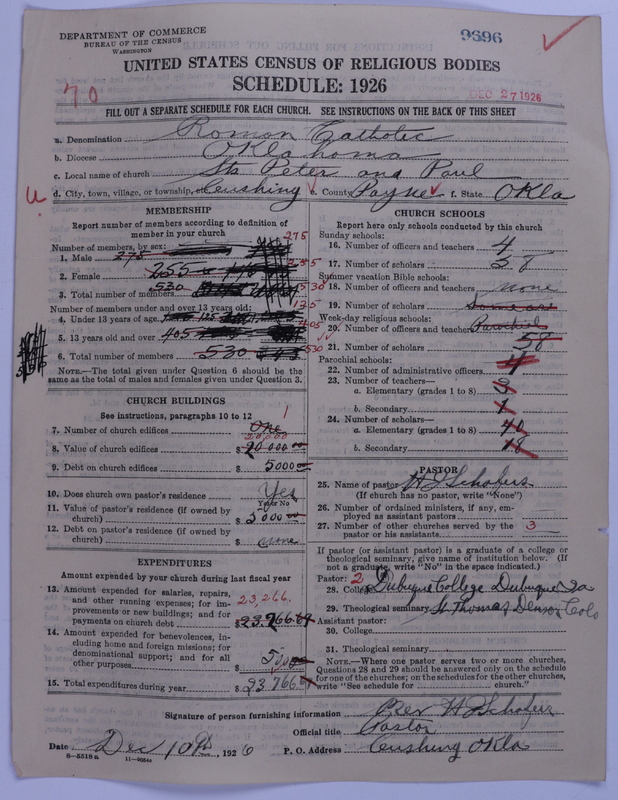 DEPARTMENT OF COMMERCE
BUREAU OF THE CENSUS
WASHINGTON
9896
UNITED STATES CENSUS OF RELIGIOUS BODIES
SCHEDULE: 1926
70
DEC 27 1926
FILL OUT A SEPARATE SCHEDULE FOR EACH CHURCH. SEE INSTRUCTIONS ON THE BACK OF THIS SHEET
a. Denomination Roman Catholic
b. Diocese Oklahoma
c. Local name of church Sts Peter and Paul
d. City, town, village, or township, Cushing e. County Payne f. State Okla
MEMBERSHIP
Report number of members according to definition of
member in your church
Number of members, by sex:
1. Male 275 275
2. Female 255 255
3. Total number of members 530 530
Number of members under and over 13 years old:
4. Under 13 years of age 125
5. 13 years old and over 405 405
6. Total number of members 530 530
NOTE.—The total given under Question 6 should be
same as the total of males and females given under Question 3.
CHURCH BUILDINGS
See instructions, paragraphs 10 to 12
7. Number of church edifices One 1
8. Value of church edifices $ 20000 20,000
9. Debt on church edifices $ 5000
10. Does church own pastor's residence Yes
Yes or No
11. Value of pastor's residence (if owned by
church) $ 5000
12. Debt on pastor's residence (if owned by
church) $ none
EXPENDITURES
Amount expended by your church during last fiscal year
13. Amount expended for salaries, repairs,
and other running expenses; for im-
provements or new buildings; and for
payments on church debt 23,266. $ 23,766.69
14. Amount expended for benevolences, in-
cluding home and foreign missions; for
denominational support; and for all
other purposes $ 500
15. Total expenditures during year $ 23766
CHURCH SCHOOLS
Report here only schools conducted by this church
Sunday schools:
16. Number of officers and teachers 4
17. Number of scholars 58
Summer vacation Bible schools:
18. Number of officers and teachers none
19. Number of scholars
Week-day religious schools:
20. Number of officers and teachers Parochial
21. Number of scholars 58
Parochial schools:
22. Number of administrative officers 4
23. Number of teachers—
a. Elementary (grades 1 to 8) 3
b. Secondary 1
24. Number of scholars—
a. Elementary (grades 1 to 8) 40
b. Secondary 18
PASTOR
25. Name of pastor
(If church has no pastor, write "None")
26. Number of ordained ministers, if any, em-
ployed as assistant pastors
27. Number of other churches served by the
pastor or his assistants 3
If pastor (or assistant pastor) is a graduate of a college or
theological seminary, give name of institution below. (If
not a graduate, write "No" in the space indicated.)
Pastor: 2
28. College Dubuque College Dubuque Ia
29. Theological seminary St Thomas Denver Colo
Assistant pastor:
30. College
31. Theological seminary
NOTE.—Where one pastor serves two or more churches,
Questions 28 and 29 should be answered only on the schedule
for one of the churches; on the schedules for the other churches,
write "See schedule for church."
Signature of person furnishing information
Official title Pastor
Date Dec 10th, 1926 P. O. Address Cushing Okla
8-5518a 11-9054